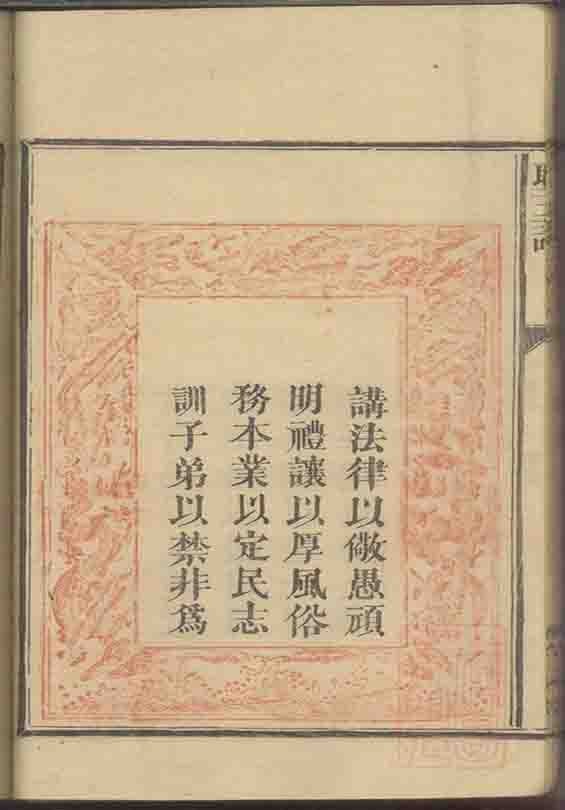 講法律以儆愚頑
明禮讓以厚風俗
務本業以定民志
訓子弟以禁非爲